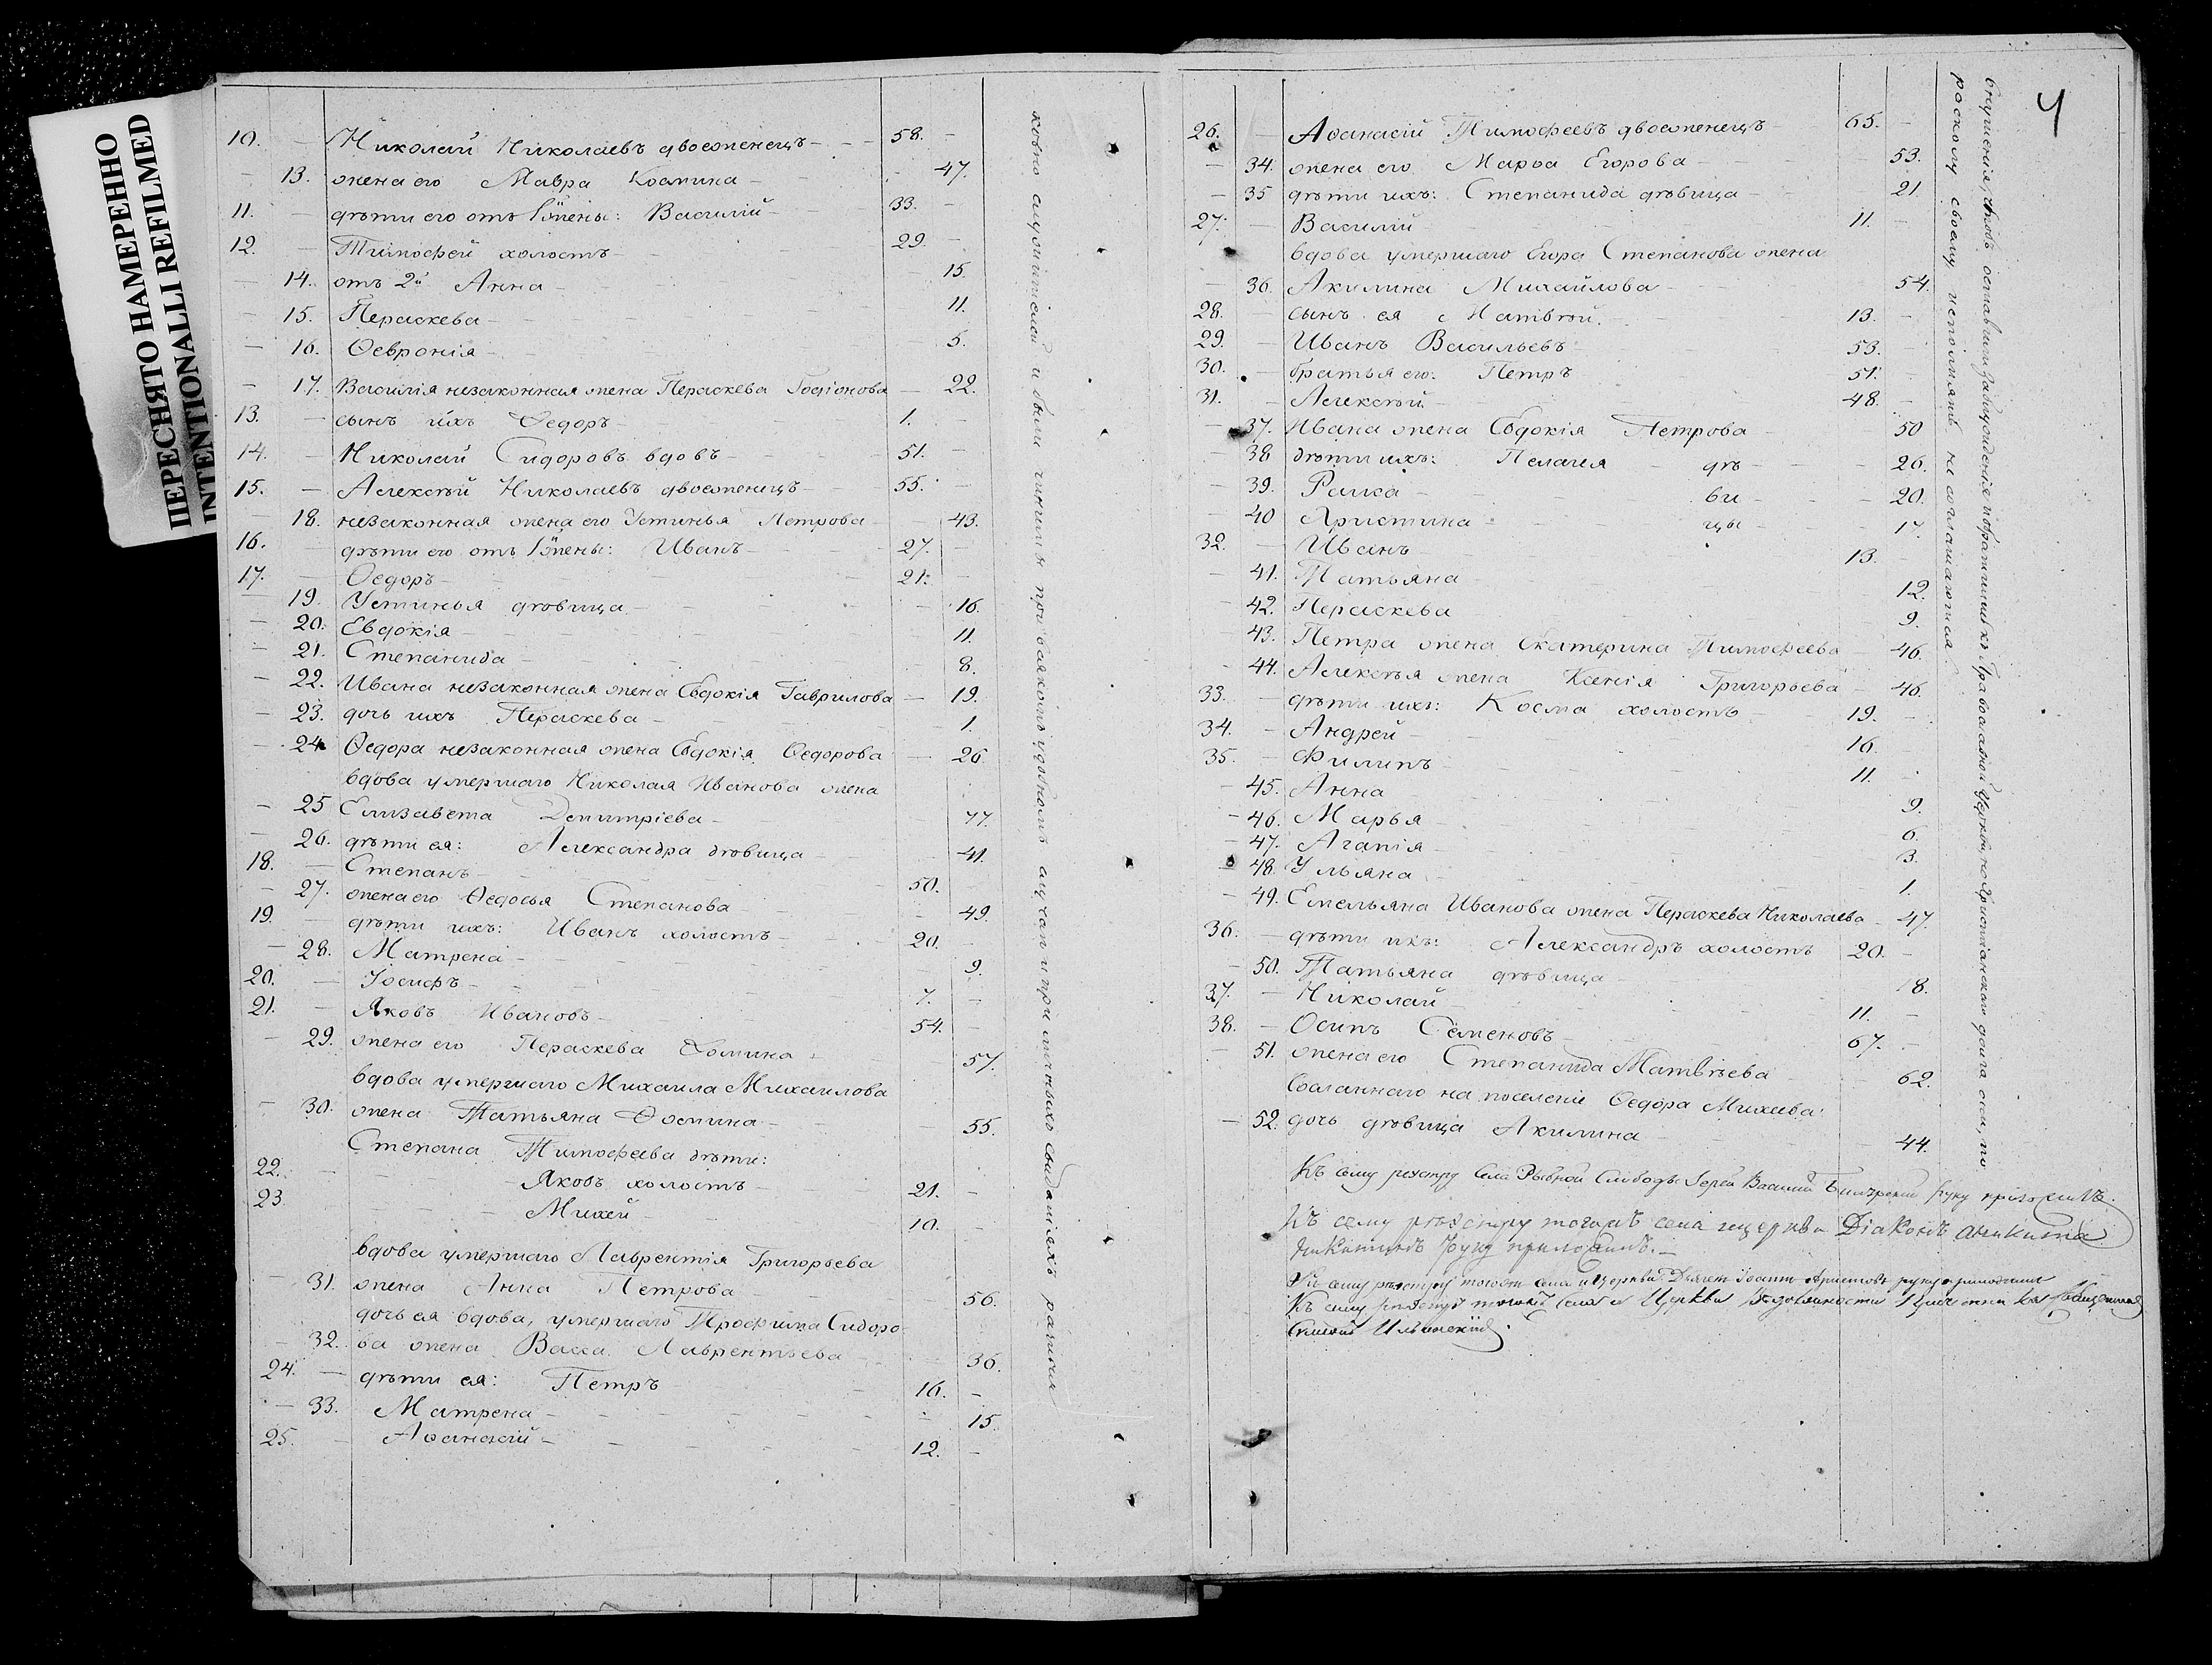 ПЕРЕСНЯТО НАМЕРЕННО
INTENTIONALLI REFILMED
10. Николай Николаевъ двоеженецъ 58.
13. жена его Мавра Космина 47.
11. дѣти его отъ 1й жены: Василій 33.
12. Тимофей холостъ 29.
14. отъ 2й Анна 15.
15. Пераскева 11.
16. Ѳевронія 5.
17. Василія незаконная жена Пераскева Родіонова 22.
13. сынъ ихъ Ѳедоръ 1.
14. Николай Сидоровъ вдовъ 51.
15. Алексѣй Николаевъ двоеженецъ 55.
18. незаконная жена его Устинья Петрова 43.
16. дѣти его отъ 1й жены: Иванъ 27.
17. Ѳедоръ 21.
19. Устинья дѣвица 16.
20. Евдокія 11.
21. Степанида 8.
22. Ивана незаконная жена Евдокія Гаврилова 19.
23. дочь ихъ Пераскева 1.
24. Ѳедора незаконная жена Евдокія Ѳедорова 26.
вдова умершаго Николая Иванова жена
25 Елизавета Димитріева 77.
26. дѣти ея: Александра дѣвица 41.
18. Степанъ 50.
27. жена его Ѳедосья Степанова 49.
19. дѣти ихъ: Иванъ холостъ 20.
28. Матрена 9.
20. Іосифъ 7.
21. Яковъ Ивановъ 54.
29. жена его Пераскева Ѳомина 57.
вдова умершаго Михаила Михаилова
30. жена Татьяна Ѳомина 55.
Степана Тимофеева дѣти:
22. Яковъ холостъ 21.
23 Михей 10.
вдова умершаго Лаврентія Григорьева
31. жена Анна Петрова 56.
дочь ея вдова, умершаго Трофима Сидоро-
32. ва жена Васса Лаврентьева 36.
24. дѣти ея: Петръ 16.
33. Матрена 15.
25. Аѳанасій 12.
4
26. Аѳанасій Тимофеевъ двоеженецъ 65.
34. жена его Марѳа Егорова 53.
35 дѣти ихъ: Степанида дѣвица 21
27. Василій 11.
вдова умершаго Егора Степанова жена
36. Акилина Михайлова 54.
28. сынъ ея Матвѣй 13.
29. Иванъ Васильевъ 53.
30. братья его: Петръ 51.
31. Алексѣй 48.
37. Ивана жена Евдокія Петрова 50
38 дѣти ихъ: Пелагея дѣ- 26.
39. Раиса ви 20.
40 Христина цы 17.
32. Иванъ 13.
41. Татьяна 12.
42. Пераскева 9.
43. Петра жена Екатерина Тимофеева 46.
44. Алексѣя жена Ксенія Григорьева 46.
33. дѣти ихъ: Косма холостъ 19.
34. Андрей 16.
35. Филипъ 11.
45. Анна 9.
46. Марья 6.
47. Агапія 3.
48. Ульяна 1.
49. Емельяна Иванова жена Пераскева Николаева 47.
36. дѣти ихъ: Александръ холостъ 20.
50. Татьяна дѣвица 18.
37. Николай 11.
38. Осипъ Семеновъ 67.
51. жена его Степанида Матвѣева 62.
Сосланнаго на поселеніе Ѳедора Михеева
52. дочь дѣвица Акилина 44.
Къ сему реэстру Села Рыбной Слободы Іерей Василий руку приложилъ.
Къ сему реэстру тогожъ села и церкви Діаконъ Аникита
Никитинъ руку приложилъ.
Къ сему реэстру тогожъ села и Церкви Дьячекъ Іоаннъ руку приложилъ
Къ сему реэстру тогожъ села и Церкви